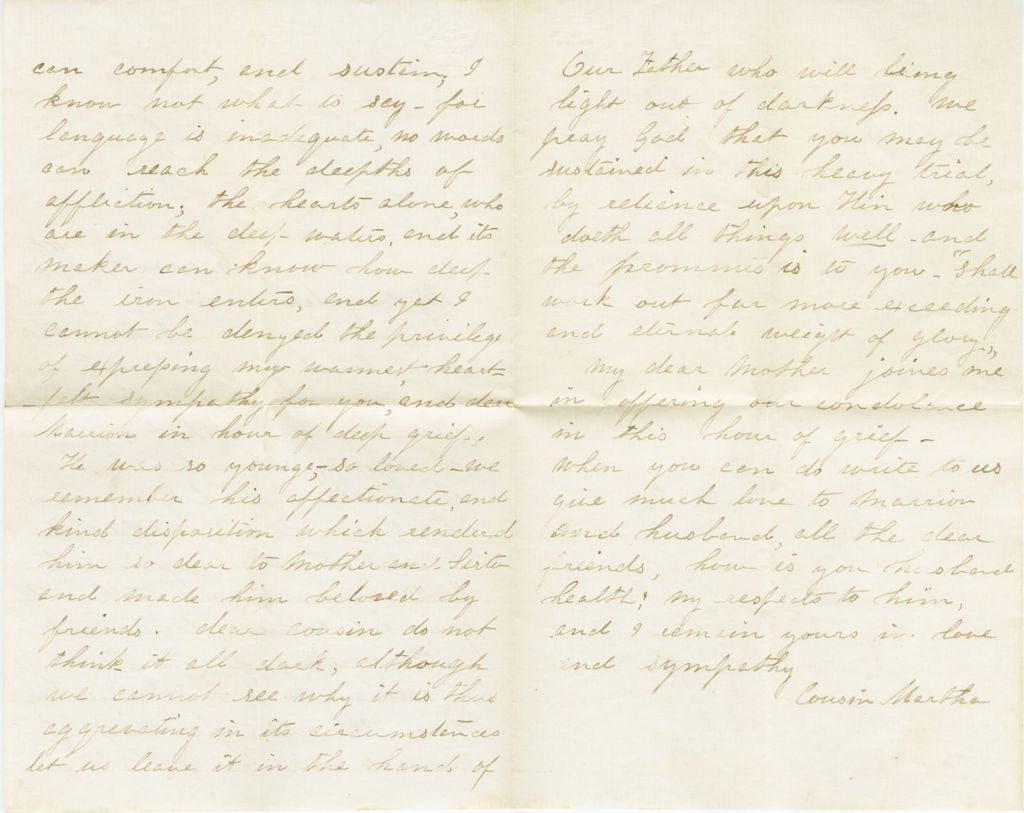 can comfort, and sustain, I
know not what to say - for
language is inadequate, no words
can reach the deepths of
affliction; the hearts alone, who
are in the deep waters, and its
maker can know how deep
the iron enters, and yet I
cannot be denyed the privilege
of expressing my warmest heart
felt sympathy for you, and dear
Marrion in hour of deep grief.
He was so younge, - so loved - we
remember his affectionate, and
kind disposition which renderd
him so dear to Mother and Sister
and made him beloved by
friends. dear cousin do not
think it all dark, although
we cannot see why it is thus
aggrevating in its circumstances
let us leave it in the hands of
Our Father who will bring
light out of darkness. We
pray God that you may be
sustained in this heavy trial,
by reliance upon Him who
doeth all things well - and
the prommis is to you - "Shall
work out far more exceeding
and eternal weight of glory",
My dear Mother joines me
in offering our condolence
in this hour of grief -
When you can do write to us
give much love to Marrion
and husband, all the dear
friends, how is you husband
health? my respects to him,
and I remain yours in love
and sympathy
Cousin Martha